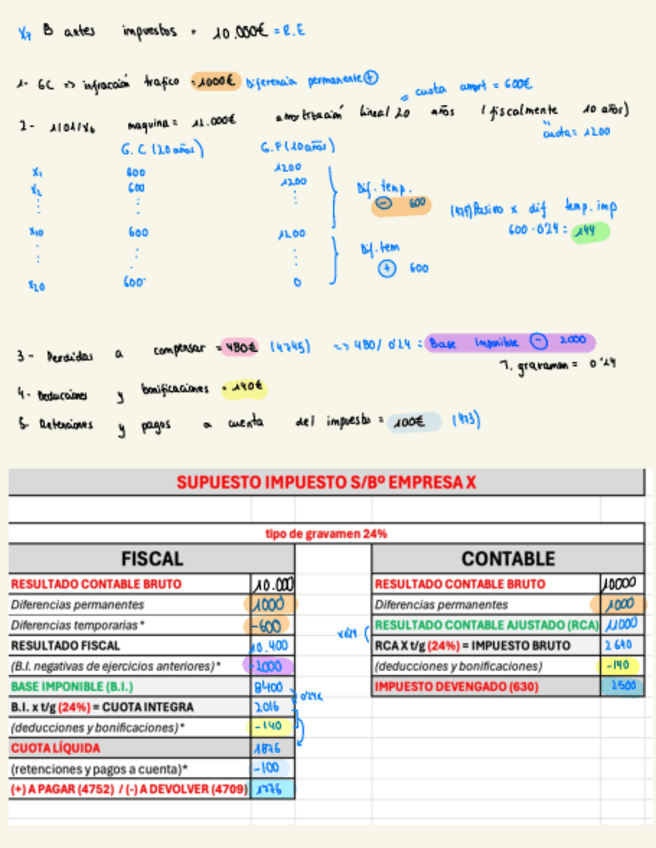 X7 B antes impuestos = 10.000€ = R.E
1- GC => infracción trafico = 1000€ Diferencia permanente +
= cuota amort = 600€
2- 1/01/X6 maquina = 12.000€ amortización lineal 20 años (fiscalmente 10 años)
cuota = 1200
G.C (20 años) G.F (10 años)
X1 600 1200
X2 600 1200
Dif. temp.
- 600
(479) Pasivo x dif temp. imp
600 · 0'24 = 144
X10 600 1200
Dif. tem
+ 600
X20 600 0
3- Perdidas a compensar = 480€ (4745) => 480 / 0'24 = Base Imponible - 2000
T. gravamen = 0'24
4- Deducciones y bonificaciones = 140€
5- Retenciones y pagos a cuenta del impuesto = 100€ (473)
SUPUESTO IMPUESTO S/Bº EMPRESA X
tipo de gravamen 24%
FISCAL CONTABLE
RESULTADO CONTABLE BRUTO 10.000 RESULTADO CONTABLE BRUTO 10000
Diferencias permanentes 1000 Diferencias permanentes 1000
Diferencias temporarias * -600 RESULTADO CONTABLE AJUSTADO (RCA) 11000
RESULTADO FISCAL 10.400 x0'24 ( RCA X t/g (24%) = IMPUESTO BRUTO 2640
(B.I. negativas de ejercicios anteriores)* -2000 (deducciones y bonificaciones) -140
BASE IMPONIBLE (B.I.) 8400 IMPUESTO DEVENGADO (630) 2500
B.I. x t/g (24%) = CUOTA INTEGRA 2016
(deducciones y bonificaciones)* -140
CUOTA LÍQUIDA 1876
(retenciones y pagos a cuenta)* -100
(+) A PAGAR (4752) / (-) A DEVOLVER (4709) 1776